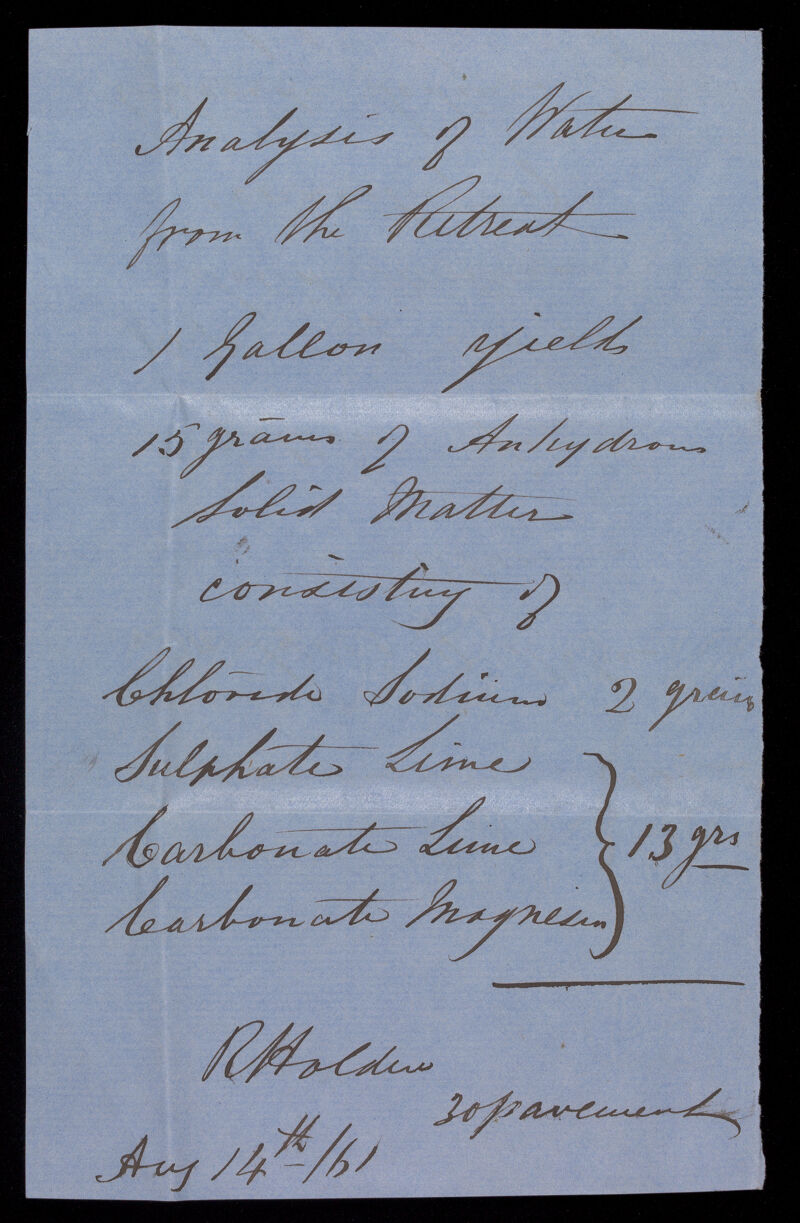 Analysis of Water
from the Retreat
1 Gallon yields
15 grains of Anhydrous
Solid Matter
consisting of
Chloride Sodium 2 grains
Sulphate Lime
Carbonate Lime } 13 grs
Carbonate Magnesia
R Holden
30 pavement
Aug 14th /61